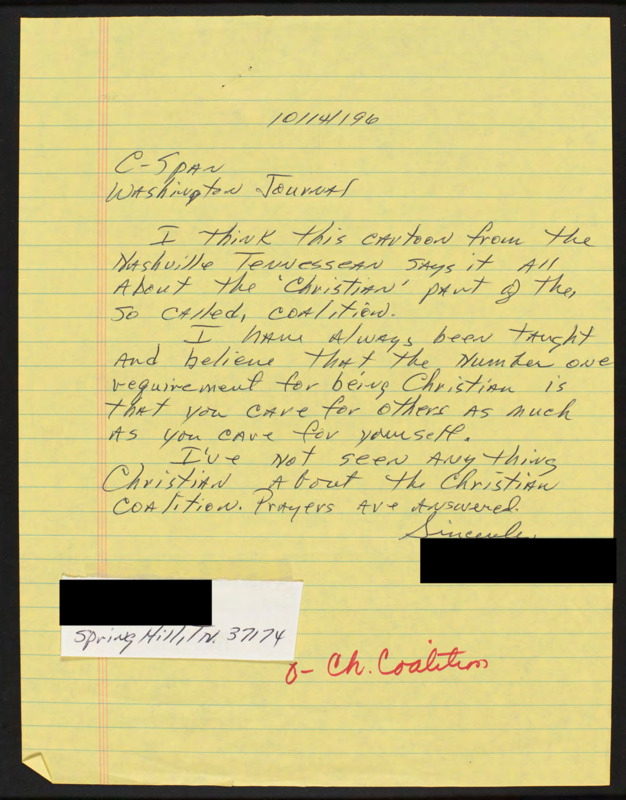 10/14/96
C-Span
Washington Journal
I think this cartoon from the
Nashville Tennessean says it all
About the 'Christian' part of the,
so called, coalition.
I have always been taught
and believe that the number one
requirement for being Christian is
that you care for others as much
as you care for yourself.
I've not seen anything
Christian about the Christian
Coalition. Prayers are answered.
Sincerely,
Spring Hill, TN. 37174
Ch. Coalition